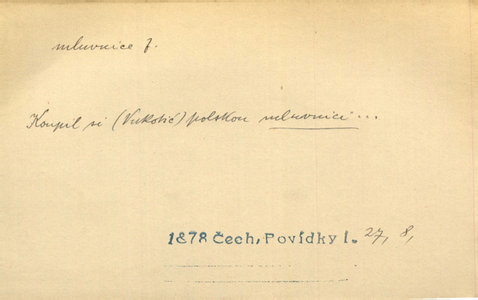 mluvnice f.
Koupil si (Vukotić) polskou mluvnici...
1878 Čech, Povídky I. 27, 8,